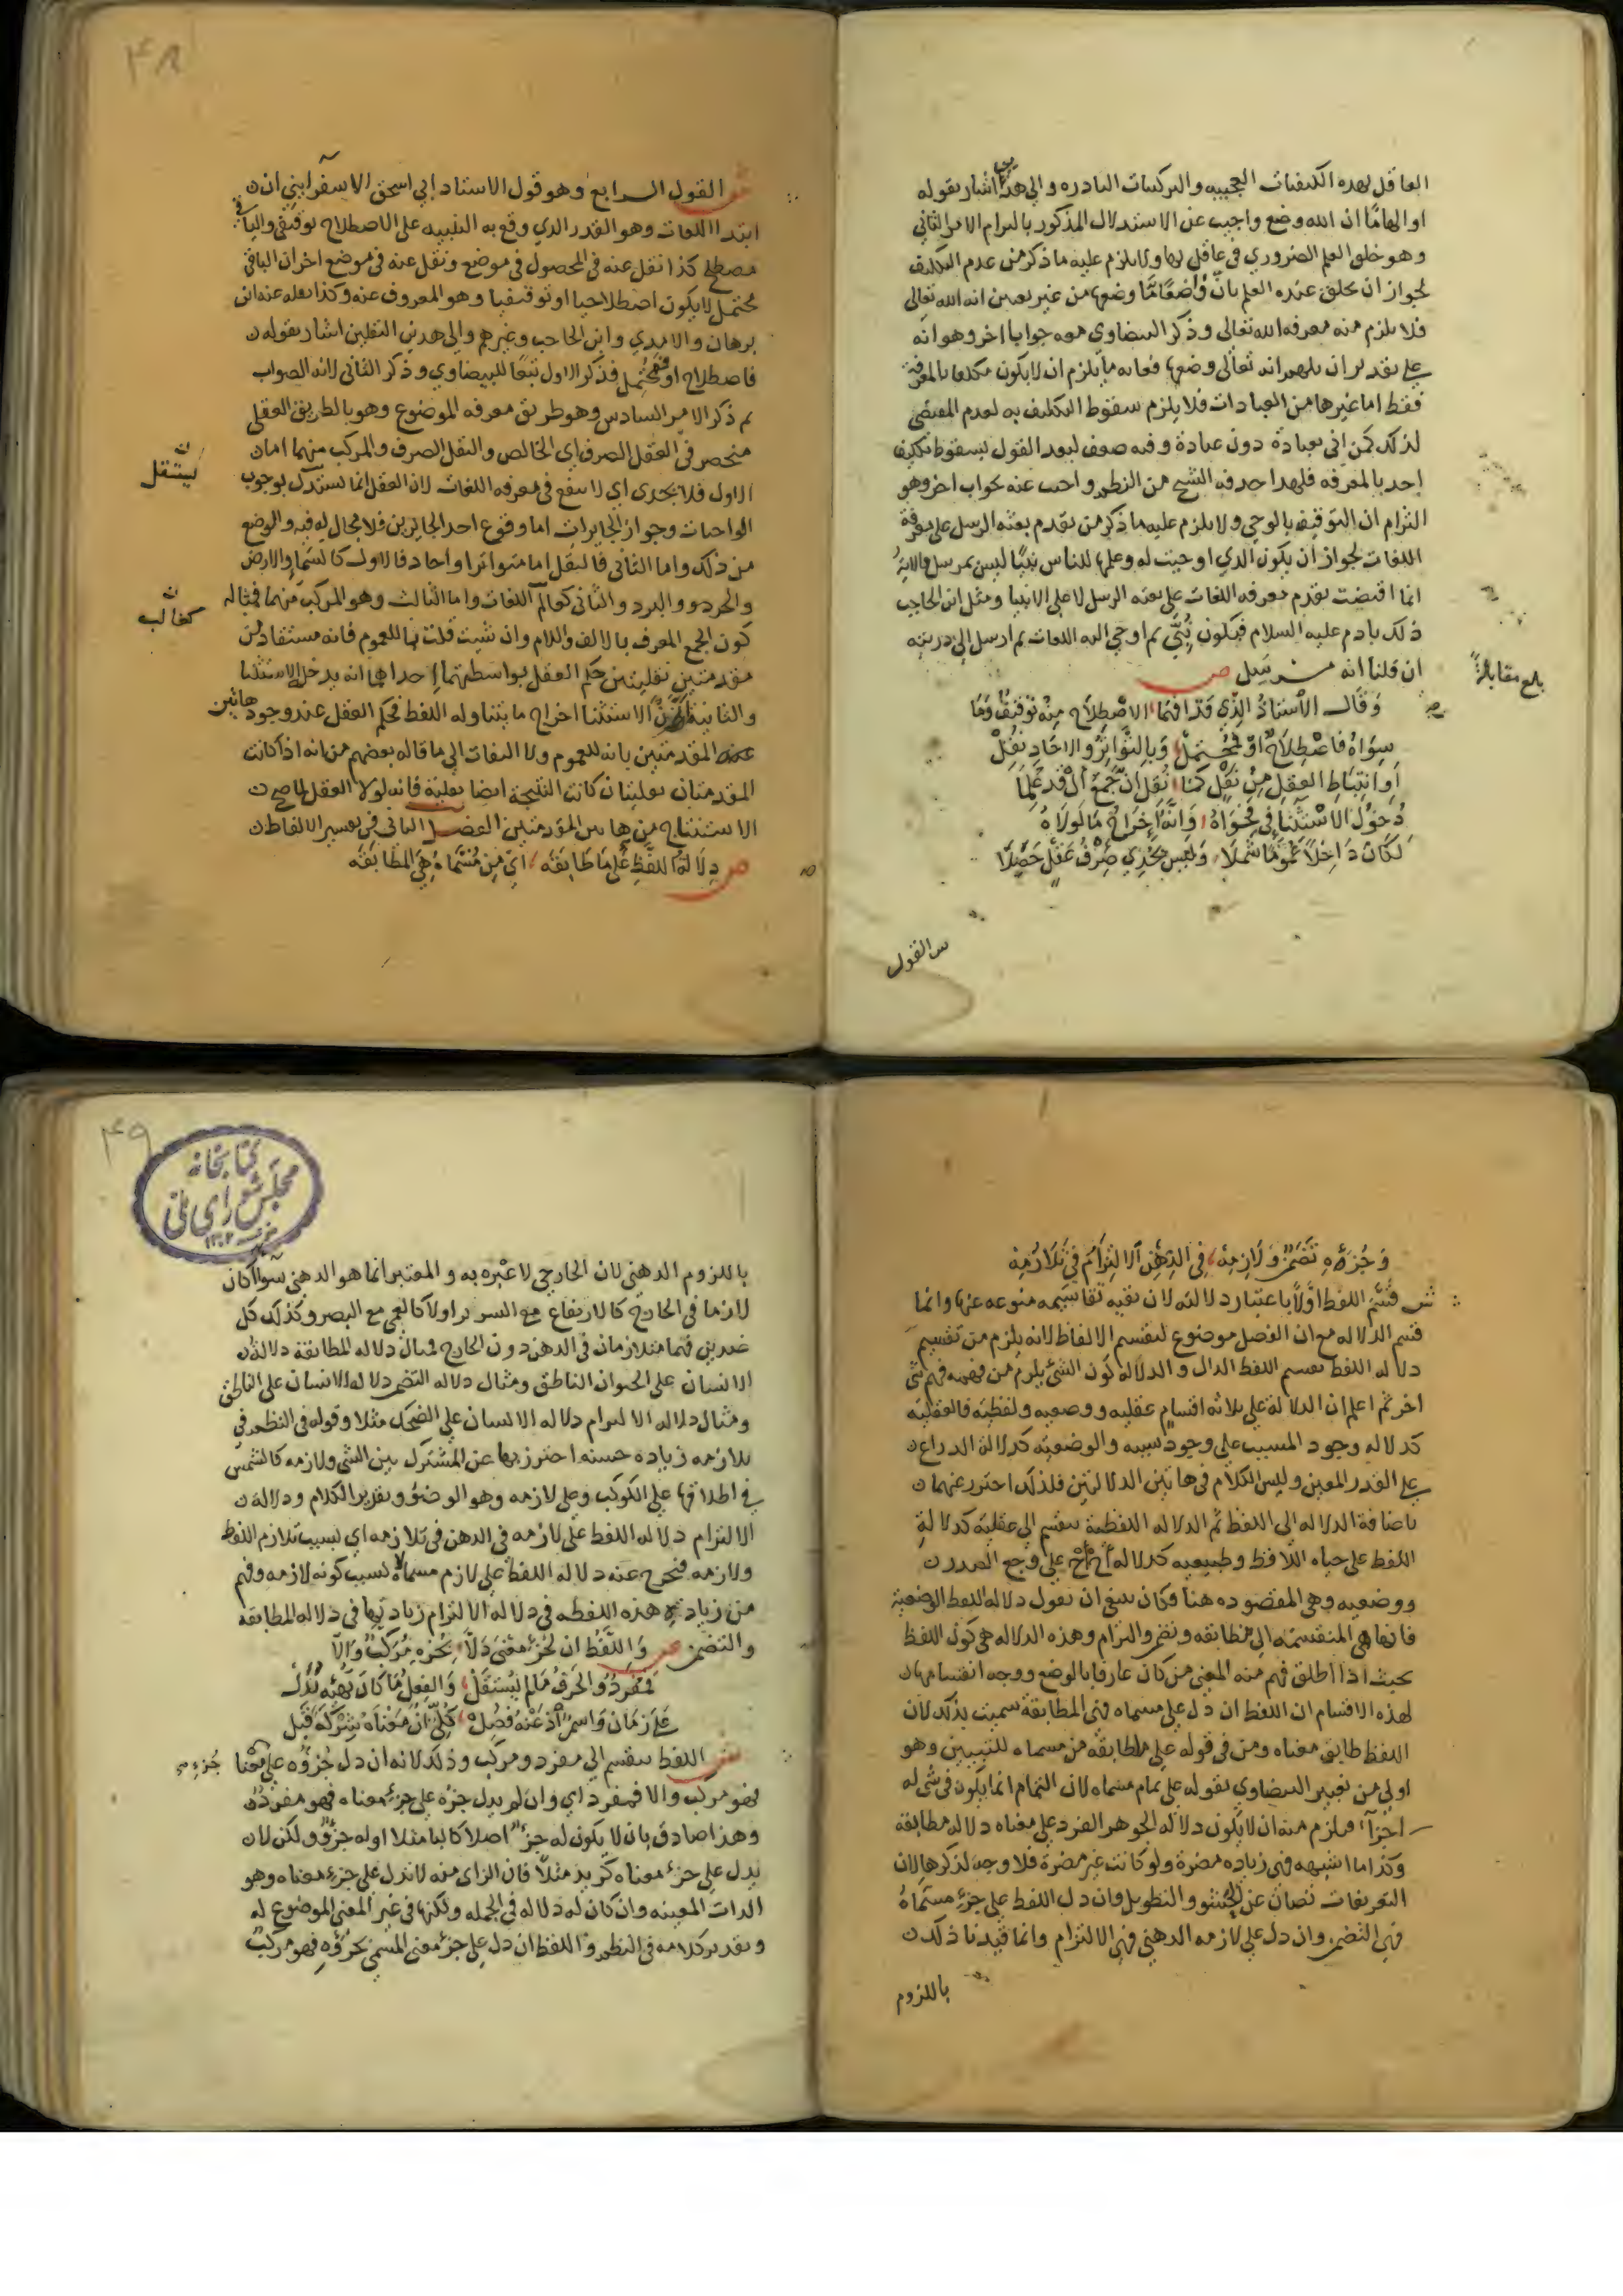 العاقل لهذه الكيفيات العجيبه والتركيبات النادره والى هذا اشار بقوله
او الهاما ان الله وضع واجيب عن الاستدلال المذكور بالتزام الامر الثاني
وهو خلق العلم الضروري في عاقل لها ولا يلزم عليه ما ذكر من عدم التكليف
لجواز ان يخلق عنده العلم بان واضعا ما وضعها من غير تعيين انه الله تعالى
فلا يلزم منه معرفه الله تعالى وذكر البيضاوي معه جوابا اخر وهو انه
على تقدير ان يلهم انه تعالى وضعها فغايه ما يلزم ان لا يكون مكلفا بالمعرفة
فقط اما غيرها من العبادات فلا يلزم سقوط التكليف به لعدم المقتضى
لذلك كمن اتى بعبادة دون عبادة وفيه ضعف لبعد القول بسقوط تكليف
احد بالمعرفه فلهذا حذفه الشيخ من النظم واجيب عنه بجواب اخر وهو
التزام ان التوقيف بالوحي ولا يلزم عليه ما ذكر من تقدم بعثه الرسل على معرفة
اللغات لجواز ان يكون الذي اوحيت له وعلمها للناس نبيا ليس بمرسل والاية
انما اقتضت تقدم معرفه اللغات على بعثه الرسل لا على الانبيا ومثل ابن الحاجب
ذلك بادم عليه السلام فيكون نبئ ثم اوحي اليه اللغات ثم ارسل الى ذريته
ان قلنا انه مرسل ص
بلغ مقابلة
وَقَالَ الأُستَاذُ الَّذِي قَد افهَمَا الاصْطِلاَح مِنْهُ تَوقيفٌ وَمَا
سِوَاهُ فَاصْطِلاَحٌ اَوْ مُحْتَمِلْ وَبِالتَّوَاتُرِ وَالاحَادِ نُقِلْ
اَوِ انْبِسَاطِ العَقلِ مِنْ نَقْلٍ كَمَا نُقِلَ اَنَّ جَمْعَ اَلْ قَد عُلِمَا
دُخُولُ الاسْتِثْنَا فِي فَحْوَاهُ وَانَّهُ اِخْرَاجُ مَا لَولَاهُ
لَكَانَ دَاخِلاً عُمُوْمًا شَمِلَا وَلَيسَ يُجْدِي صِرْفُ عَقْلٍ حَصَلَا
ش القول
٤٨
ش القول الرابع وهو قول الاستاد ابي اسحق الاسفرايني ان
ابتدا اللغات وهو القدر الذي وقع به التنبيه على الاصطلاح توقيفي والباقي
مصطلح كذا نقل عنه في المحصول في موضع ونقل عنه في موضع اخر ان الباقي
محتمل لا يكون اصطلاحيا او توقيفيا وهو المعروف عنه وكذا نقله عنه ابن
برهان والامدي وابن الحاجب وغيرهم والى هذين النقلين اشار بقوله
فاصطلاح او محتمل فذكر الاول تبعا للبيضاوي وذكر الثاني لانه الصواب
ثم ذكر الامر السادس وهو طريق معرفه الموضوع وهو بالطريق العقلي
منحصر في العقل الصرف اي الخالص والنقل الصرف والمركب منهما اما
ليستقل
الاول فلا يجدى اي لا ينفع في معرفه اللغات لان العقل انما يستدل بوجوب
الواجبات وجواز الجايزات اما وقوع احد الجايزين فلا مجال له فيه والوضع
من ذلك واما الثاني فالنقل اما متواترا واحاد فالاول كالسماء والارض
والحر والبرد والثاني كغالب اللغات واما الثالث وهو المركب منهما فمثاله
كغالب
كون الجمع المعرف بالالف واللام وان شيت قلت بال للعموم فانه مستفاد من
مقدمتين نقليتين حكم العقل بواسطتهما احداهما انه يدخله الاستثنا
والثانيه ان الاستثنا اخراج ما يتناوله اللفظ فحكم العقل عند وجود هاتين
المقدمتين بانه للعموم ولا التفات الى ما قاله بعضهم من انه اذا كانت
المقدمتان نقليتان كانت النتيجة ايضا نقلية فانه لولا العقل لما صح
الاستنتاج من هاتين المقدمتين الفصل الثاني في تقسيم الالفاظ
ص دِلَالَةُ اللَّفْظِ عَلَى مَا طَابَقَهْ اَيْ مِن مُسَمَّا وُهِيَ المطَابَقَهْ
وَجُزْءِهِ تَضَمُّنٌ وَلَازِمِهْ فِي الذِّهْنِ اَلالْتِزَامُ فِي تَلَازُمِهْ
ش قسّم اللفظ اوّلا باعتبار دلالته لان بقيه تقاسيمه متنوعه عنها وانما
قسم الدلاله مع ان الفصل موضوع لتقسيم الالفاظ لانه يلزم من تقسيم
دلاله اللفظ تقسيم اللفظ الدال والدلاله كون الشئ يلزم من فهمه فهم شئ
اخر ثم اعلم ان الدلالة على ثلاثه اقسام عقليه ووضعيه ولفظيه فالعقليه
كدلاله وجود المسبب على وجود سببه والوضعيه كدلالة الدراع
على القدر المعين وليس الكلام في هاتين الدلالتين فلذلك احترز عنهما
باضافة الدلاله الى اللفظ ثم الدلاله اللفظية تنقسم الى عقلية كدلالة
اللفظ على حياه اللافظ وطبيعيه كدلاله اَحْ اَحْ على وجع الصدر
ووضعيه وهي المقصوده هنا فكان ينبغي ان يقول دلاله اللفظ الوضعية
فانها هي المنقسمه الى مطابقه وتضمن والتزام وهذه الدلاله هي كون اللفظ
بحيث اذا اطلق فهم منه المعنى من كان عارفا بالوضع ووجه انقسامها
لهذه الاقسام ان اللفظ ان دل على مسماه فهي المطابقة سميت بذلك لان
اللفظ طابق معناه ومن في قوله على ما طابقه من مسماه للتبيين وهو
اولى من تعبير البيضاوي بقوله على تمام مسماه لان التمام انما يكون في شئ له
اجزآء فيلزم منه ان لا يكون دلاله الجوهر الفرد على معناه دلاله مطابقه
وكذا ما اشبهه فهي زياده مضرة ولو كانت غير مضرة فلا وجه لذكرها لان
التعريفات تصان عن الحشو والتطويل وان دل اللفظ على جزء مسماه
فهي التضمن وان دل على لازمه الذهني فهي الالتزام وانما قيدنا ذلك
باللزوم
٤٩
كتابخانه
مجلس شوراى ملى
باللزوم الذهني لان الخارجي لا عبره به والمعتبر انما هو الذهني سوآ كان
لازما في الخارج كالارتفاع مع السرير اولا كالعمي مع البصر وكذلك كل
ضدين فهما متلازمان في الذهن دون الخارج فمثال دلاله المطابقة دلالة
الانسان على الحيوان الناطق ومثال دلاله التضمن دلاله الانسان على الناطق
ومثال دلاله الالتزام دلاله الانسان على الضحك مثلا وقوله في النظم في
تلازمه زياده حسنه احترز بها عن المشترك بين الشئ ولازمه كالشمس
في اطلاقها على الكوكب وعلى لازمه وهو الوضؤ وتقرير الكلام ودلاله
الالتزام دلاله اللفظ على لازمه في الذهن في تلازمه اي بسبب تلازم اللفظ
ولازمه فتخرج عنه دلاله اللفظ على لازم مسماه لا بسبب كونه لازمه وفهم
من زياده هذه اللفظه في دلاله الالتزام زيادتها في دلاله المطابقه
والتضمن ص وَاللَّفْظُ ان لجُزْءِ مَعْنىً دَلَّا بِجُزْءِهِ مُرَكَّبٌ وَالَّا
فَمُفرَدٌ وَالحَرْفُ مَا لَم يَسْتَقِلْ وَالفِعْلُ مَا كَانَ بِهَيْئَةٍ يَدُلْ
عَلَى زَمَانٍ وَاسمٌ اذ عَنْهُ فُصِلْ كُلِّيٌّ اِنْ مَعْنَاهُ شِرْكَةً قَبِلْ
ش اللفظ ينقسم الى مفرد ومركب وذلك لانه ان دل جُزؤُه على معنا جُزءِ
فهو مركب والا فمفرد اي وان لم يدل جزءه على جزء معناه فهو مفرد
وهذا صادق بان لا يكون له جزء اصلا كالبا مثلا اوله جزؤ ولكن لا
يدل على جزء معناه كزيد مثلا فان الزاى منه لا تدل على جزء معناه وهو
الذات المعينه وان كان له دلاله في الجمله ولكنها في غير المعنى الموضوع له
وتقدير كلامه في النظم واللفظ ان دل على جزء معنى المسمى بجزؤه فهو مركب